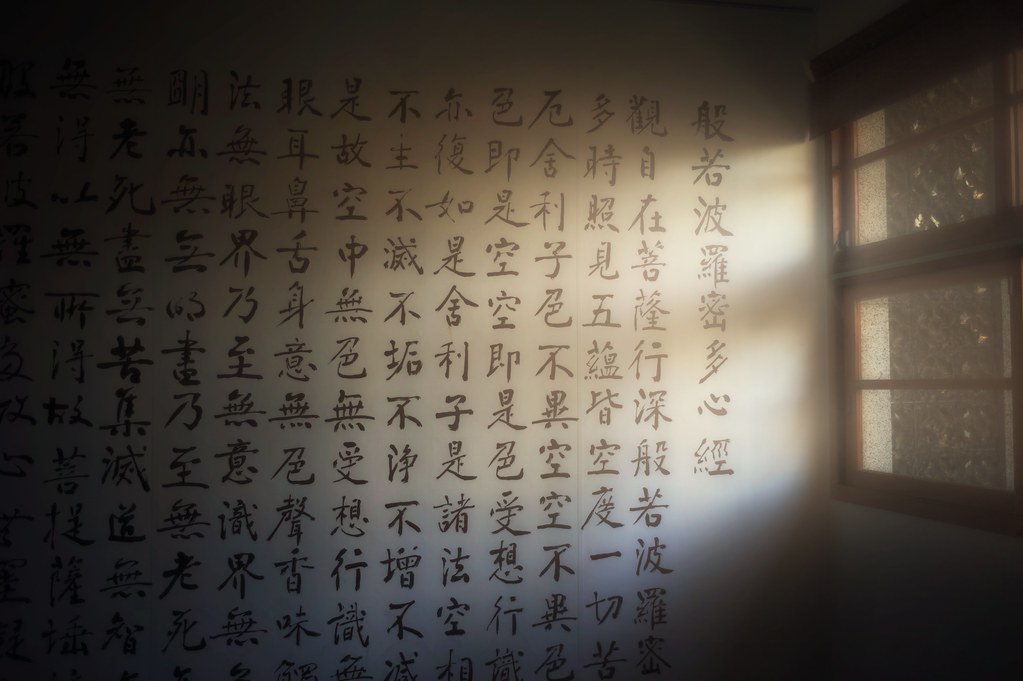 般若波羅密多心經
觀自在菩薩行深般若波羅密
多時照見五蘊皆空度一切苦
厄舍利子色不異空空不異色
色即是空空即是色受想行識
亦復如是舍利子是諸法空相
不生不滅不垢不淨不增不減
是故空中無色無受想行識無
眼耳鼻舌身意無色聲香味觸
法無眼界乃至無意識界無
明亦無無明盡乃至無老死
無老死盡無苦集滅道無智
無得以無所得故菩提薩埵
般若波羅密多故心無罣